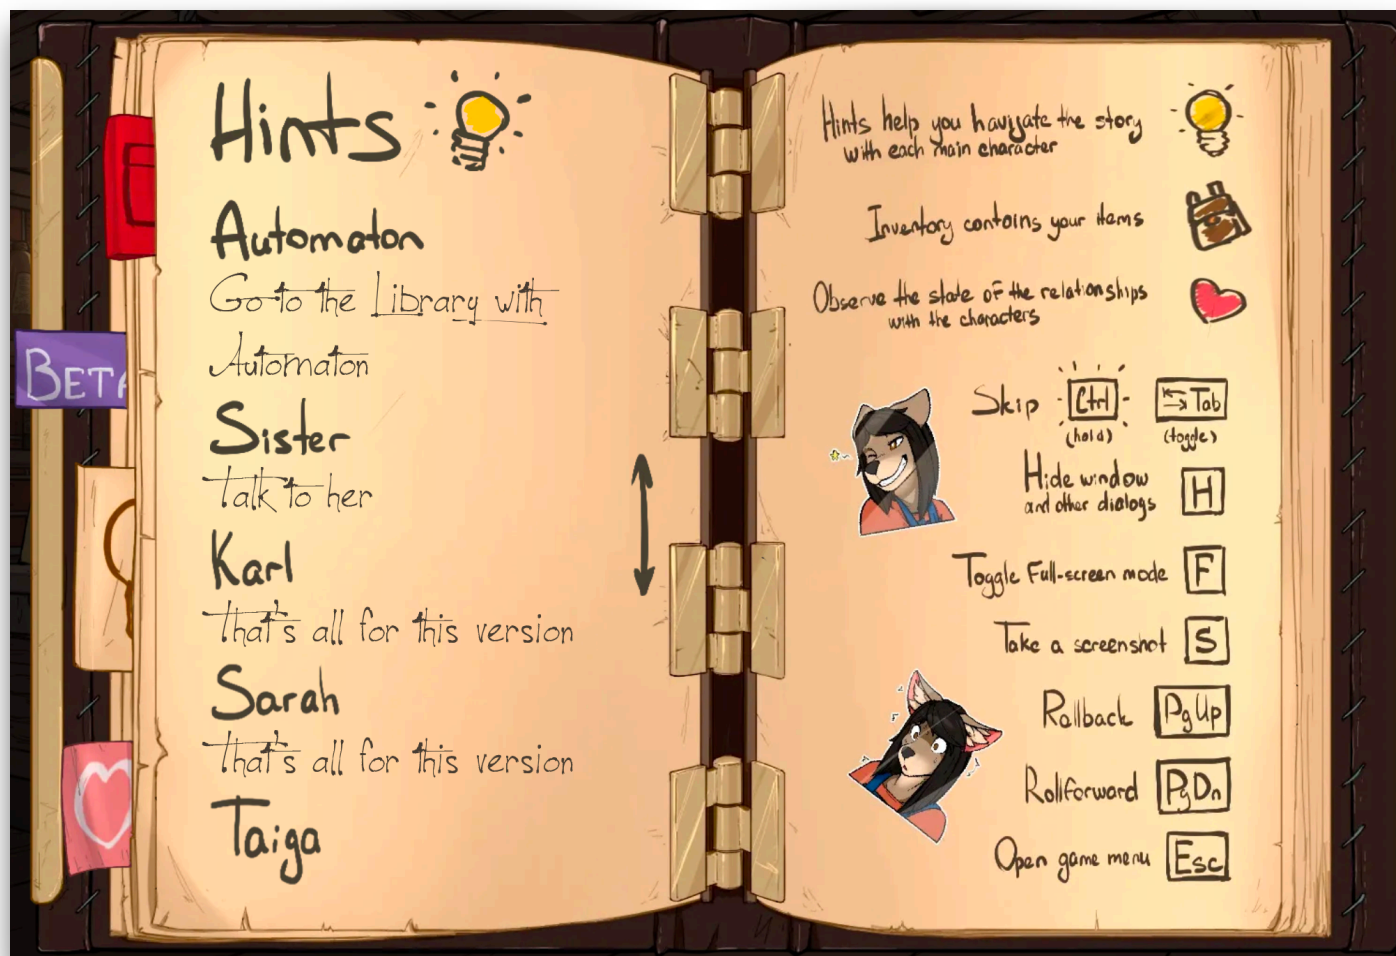 Hints
Automaton
Go to the Library with
Automaton
Sister
Talk to her
Karl
That's all for this version
Sarah
That's all for this version
Taiga
BETA
Hints help you navigate the story
with each main character
Inventory contains your items
Observe the state of the relationships
with the characters
Skip Ctrl Tab
(hold) (toggle)
Hide window
and other dialogs H
Toggle Full-screen mode F
Take a screenshot S
Rollback PgUp
Rollforward PgDn
Open game menu Esc